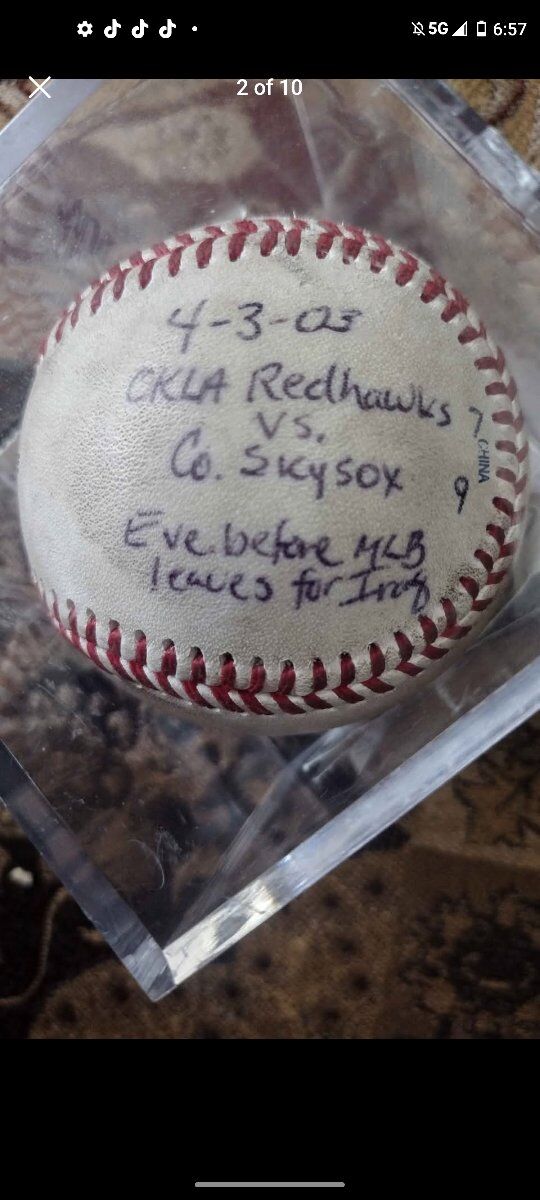 5G 6:57
2 of 10
4-3-03
OKLA Redhawks 7
vs.
Co. Skysox 9
CHINA
Eve before MLB
leaves for Iraq